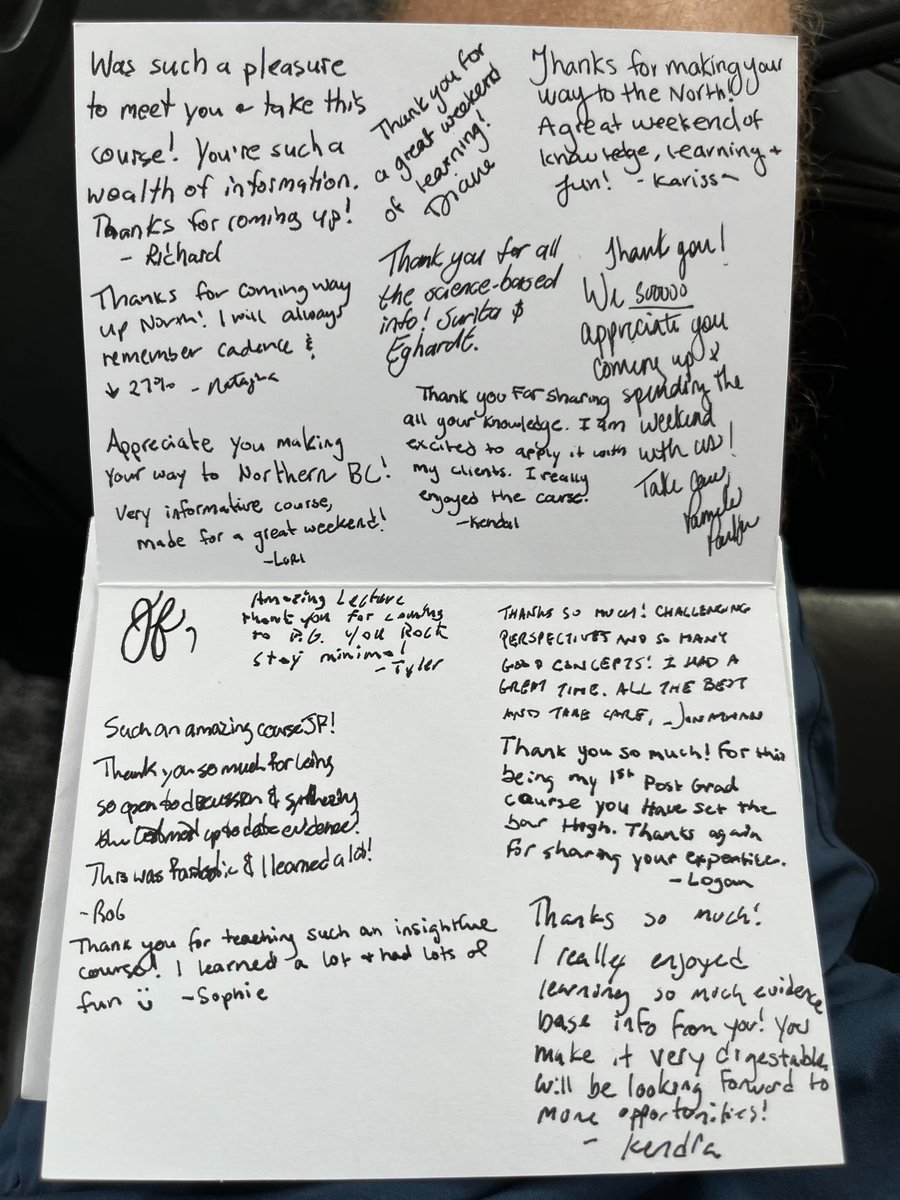 Was such a pleasure
to meet you & take this
course! You're such a
wealth of information.
Thanks for coming up!
- Richard
Thank you for
a great weekend
of learning!
Diane
Thanks for making your
way to the North!
A great weekend of
knowledge, learning +
fun! - Karissa
Thanks for coming way
up North! I will always
remember cadence &
↓ 27% - Natasha
Thank you for all
the science-based
info! Surita &
Eghardt.
Thank you!
We sooooo
appreciate you
coming up &
spending the
weekend
with us!
Take care,
Pamela
Appreciate you making
your way to Northern BC!
Very informative course,
made for a great weekend!
-Lori
Thank you for sharing
all your knowledge. I am
excited to apply it with
my clients. I really
enjoyed the course.
-Kendal
Amazing Lecture
thank you for coming
to P.G. You Rock
stay minimal
-Tyler
Such an amazing course JF!
Thank you so much for being
so open to discussion &
up to date evidence!
This was fantastic & I learned a lot!
-Rob
Thank you for teaching such an insightful
course! I learned a lot + had lots of
fun -Sophie
THANKS SO MUCH! CHALLENGING
PERSPECTIVES AND SO MANY
GOOD CONCEPTS! I HAD A
GREAT TIME. ALL THE BEST
AND TAKE CARE,
Thank you so much! For this
being my 1st Post Grad
course you have set the
bar High. Thanks again
for sharing your expertise.
-Logan
Thanks so much!
I really enjoyed
learning so much evidence
base info from you! You
make it very digestable
will be looking forward to
more opportunities!
- Kendra